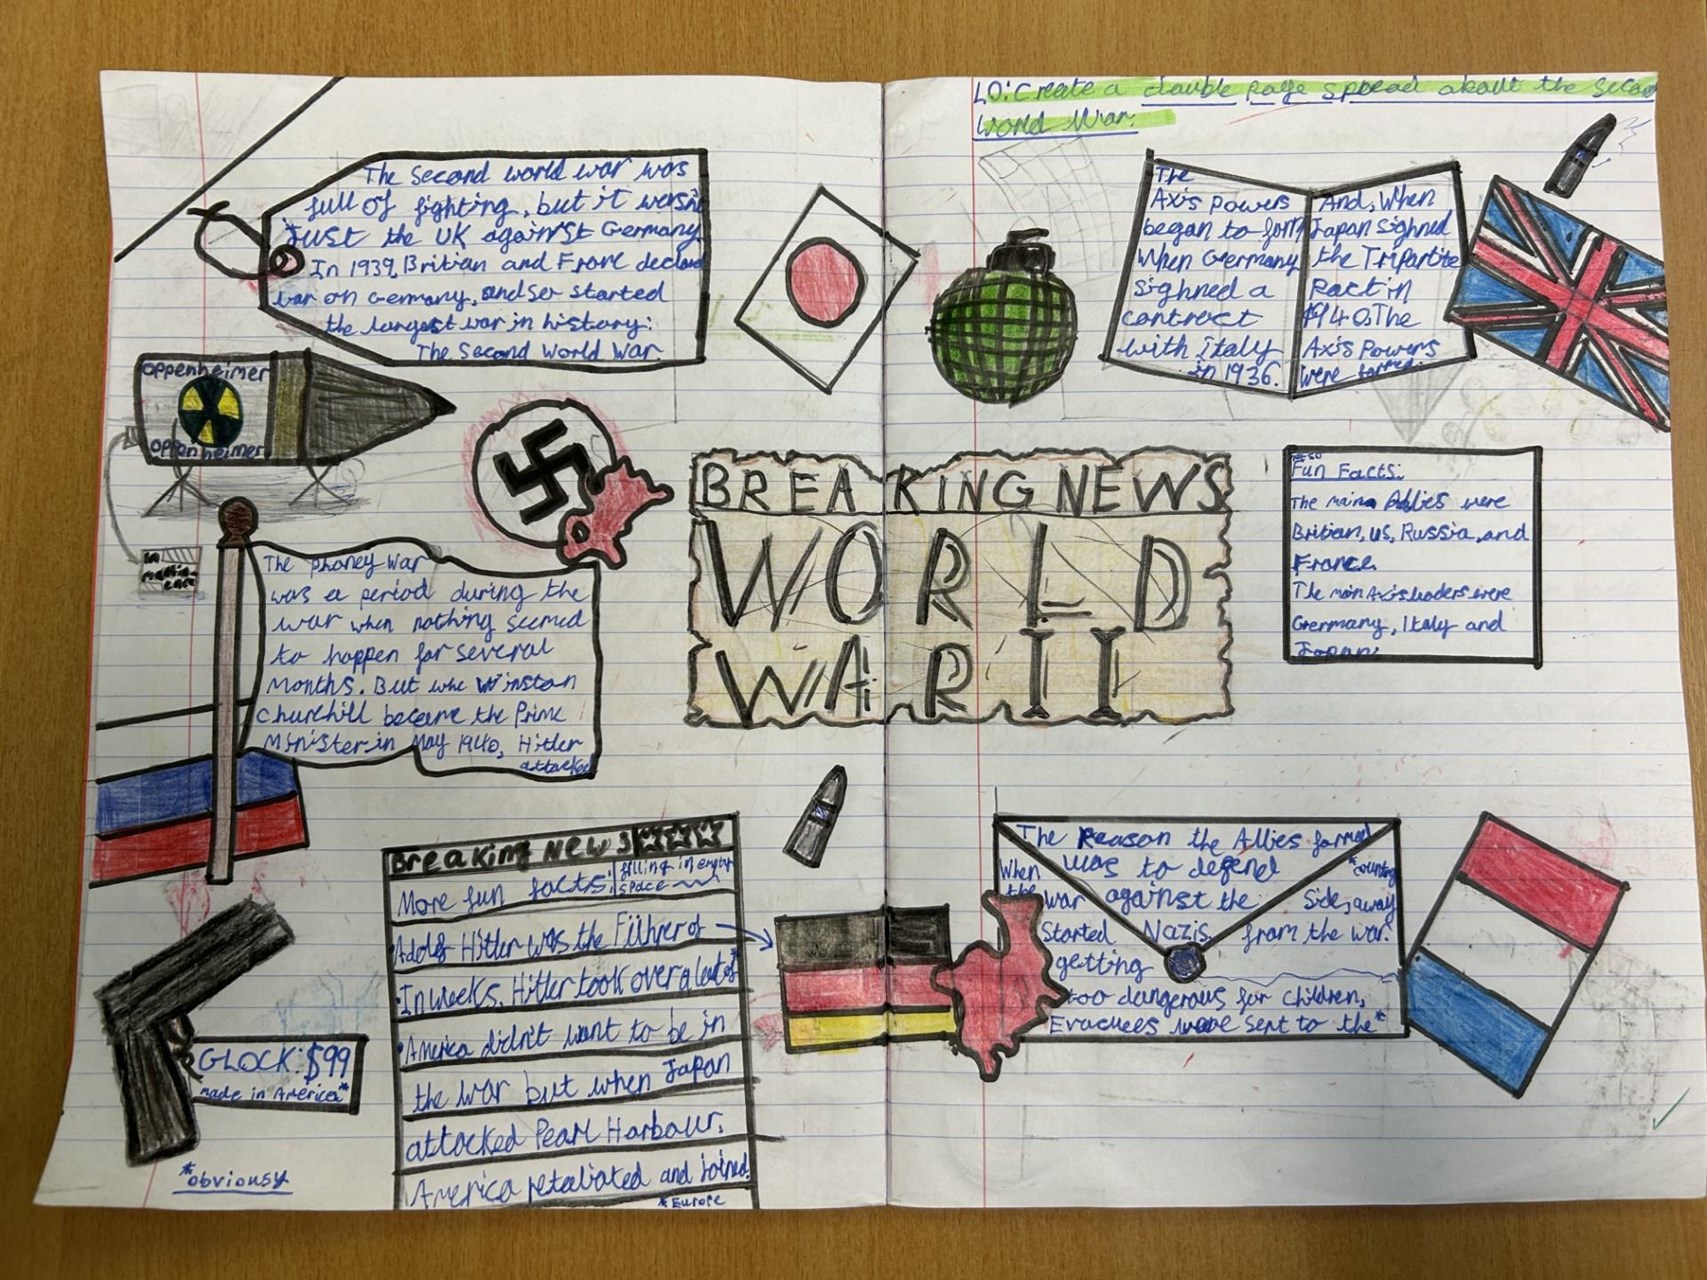 LO: Create a double page spread about the Second
World War.
The Second world war was
full of fighting, but it wasn't
just the UK against Germany
In 1939, Britian and Franc declared
war on Germany, and so started
the largest war in history:
The Second World War.
The
Axis Powers
began to form
when Germany
sighned a
contract
with Italy
in 1936.
And, when
Japan sighned
the Tripartite
Pact in
1940. The
Axis Powers
were formed.
oppenheimer
oppenheimer
BREAKING NEWS
WORLD
WAR II
Fun Facts:
The main Allies were
Britian, US, Russia, and
France.
The main Axis leaders were
Germany, Italy and
Japan.
The phoney War
was a period during the
war when nothing seemed
to happen for several
Months. But whe Winston
Churchill became the Prime
Minister in May 1940, Hitler
attacked
Breaking News
More fun facts:
filling in empty
space
Adolf Hitler was the Führer of
In weeks, Hitler took over a lot of*
America didn't want to be in
the war but when Japan
attacked Pearl Harbour,
America retaliated and joined.
*Europe
GLOCK: $99
made in America*
*obviousy
The Reason the Allies formed
was to defend
against the
Nazis.
When
the
war
Started
getting
too dangerous for children,
Evacuees were sent to the*
*country
side, away
from the war.